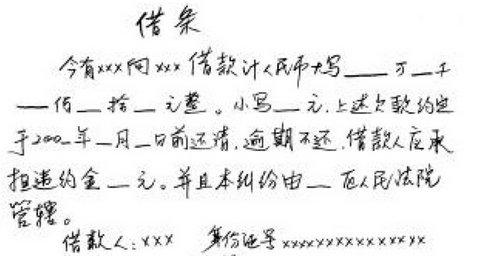 借条
今有xxx向xxx借款计人民币大写___万__千
__佰__拾__元整。小写__元,上述欠款约定
于200_年_月_日前还清,逾期不还,借款人应承
担违约金__元。并且本纠纷由__区人民法院
管辖。
借款人:xxx 身份证号xxxxxxxxxxxxxxx